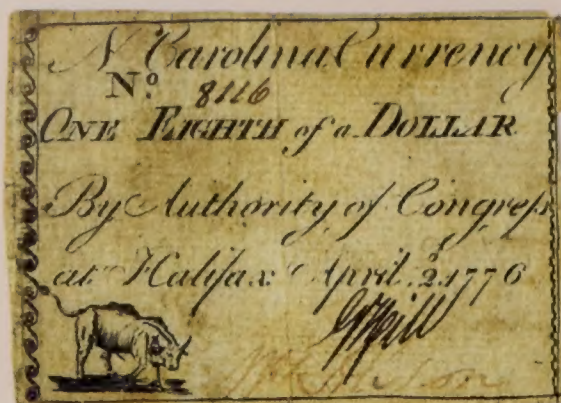 N Carolina Currency
No. 8116
ONE EIGHTH of a DOLLAR
By Authority of Congreſs
at Halifax April, 2, 1776